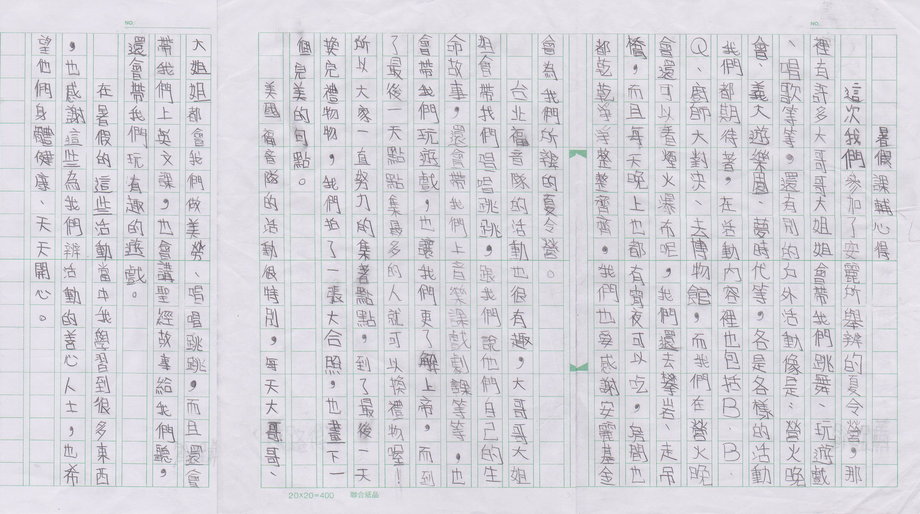 暑假課輔心得
這次我們參加了安麗所舉辦的夏令營,那
裡有許多大哥哥大姐姐會帶我們跳舞、玩遊戲
、唱歌等等,還有別的戶外活動像是:營火晚
會、義大遊樂園、夢時代等,各是各樣的活動
我們都期待著,在活動內容裡也包括B.B.
Q、廚師大對決、去博物館,而我們在營火晚
會還可以看煙火瀑布呢,我們還去攀岩、走吊
橋,而且每天晚上也都有宵夜可以吃,房間也
都乾乾淨淨整整齊齊,我們也要感謝安麗基金
會為我們所辦的夏令營。
台北福音隊的活動也很有趣,大哥哥大姐
姐會帶我們唱唱跳跳,跟我們說他們自己的生
命故事,還會帶我們上音樂課戲劇課等等,也
會帶我們玩遊戲,也讓我們更了解上帝,而到
了最後一天點點集最多的人就可以換禮物喔!
所以大家一直努力的集著點點,到了最後一天
換完禮物物,我們拍了一張大合照,也畫下一
個完美的句點。
美國福音隊的活動很特別,每天大哥哥、
大姐姐都會我們做美勞、唱唱跳跳,而且還會
帶我們上英文課,也會講聖經故事給我們聽,
還會帶我們玩有趣的遊戲。
在暑假的這些活動當中我學習到很多東西
,也感謝這些為我們辦活動的善心人士,也希
望他們身體健康、天天開心。
NO.
NO.
20X20=400 聯合紙品